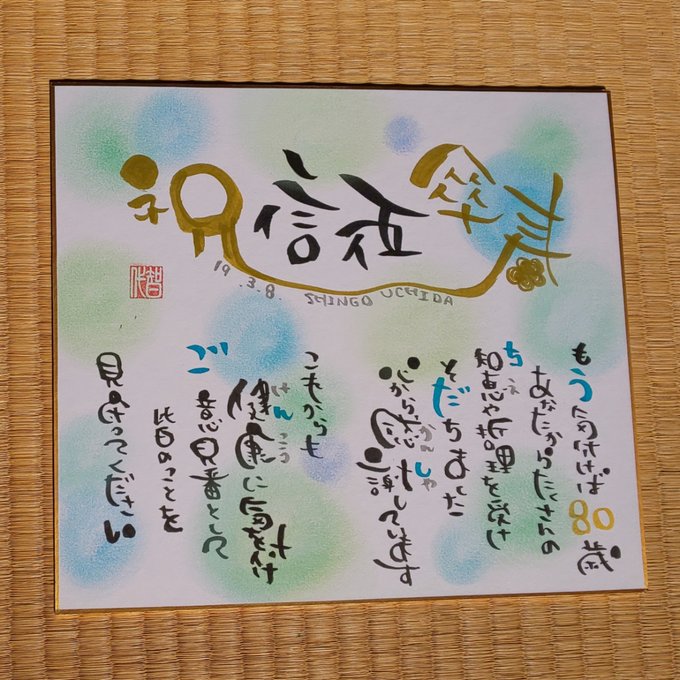 寿
傘
信
19.3.8.
SHINGO UCHIDA
もう気付けば80歳
あなたからたくさんの
ちえ
知恵や理を受け
そだちました
かんしゃ
心から感謝しています
これからも
けんこう
健康に気を付け
ご意見番として
皆のことを
見守ってください